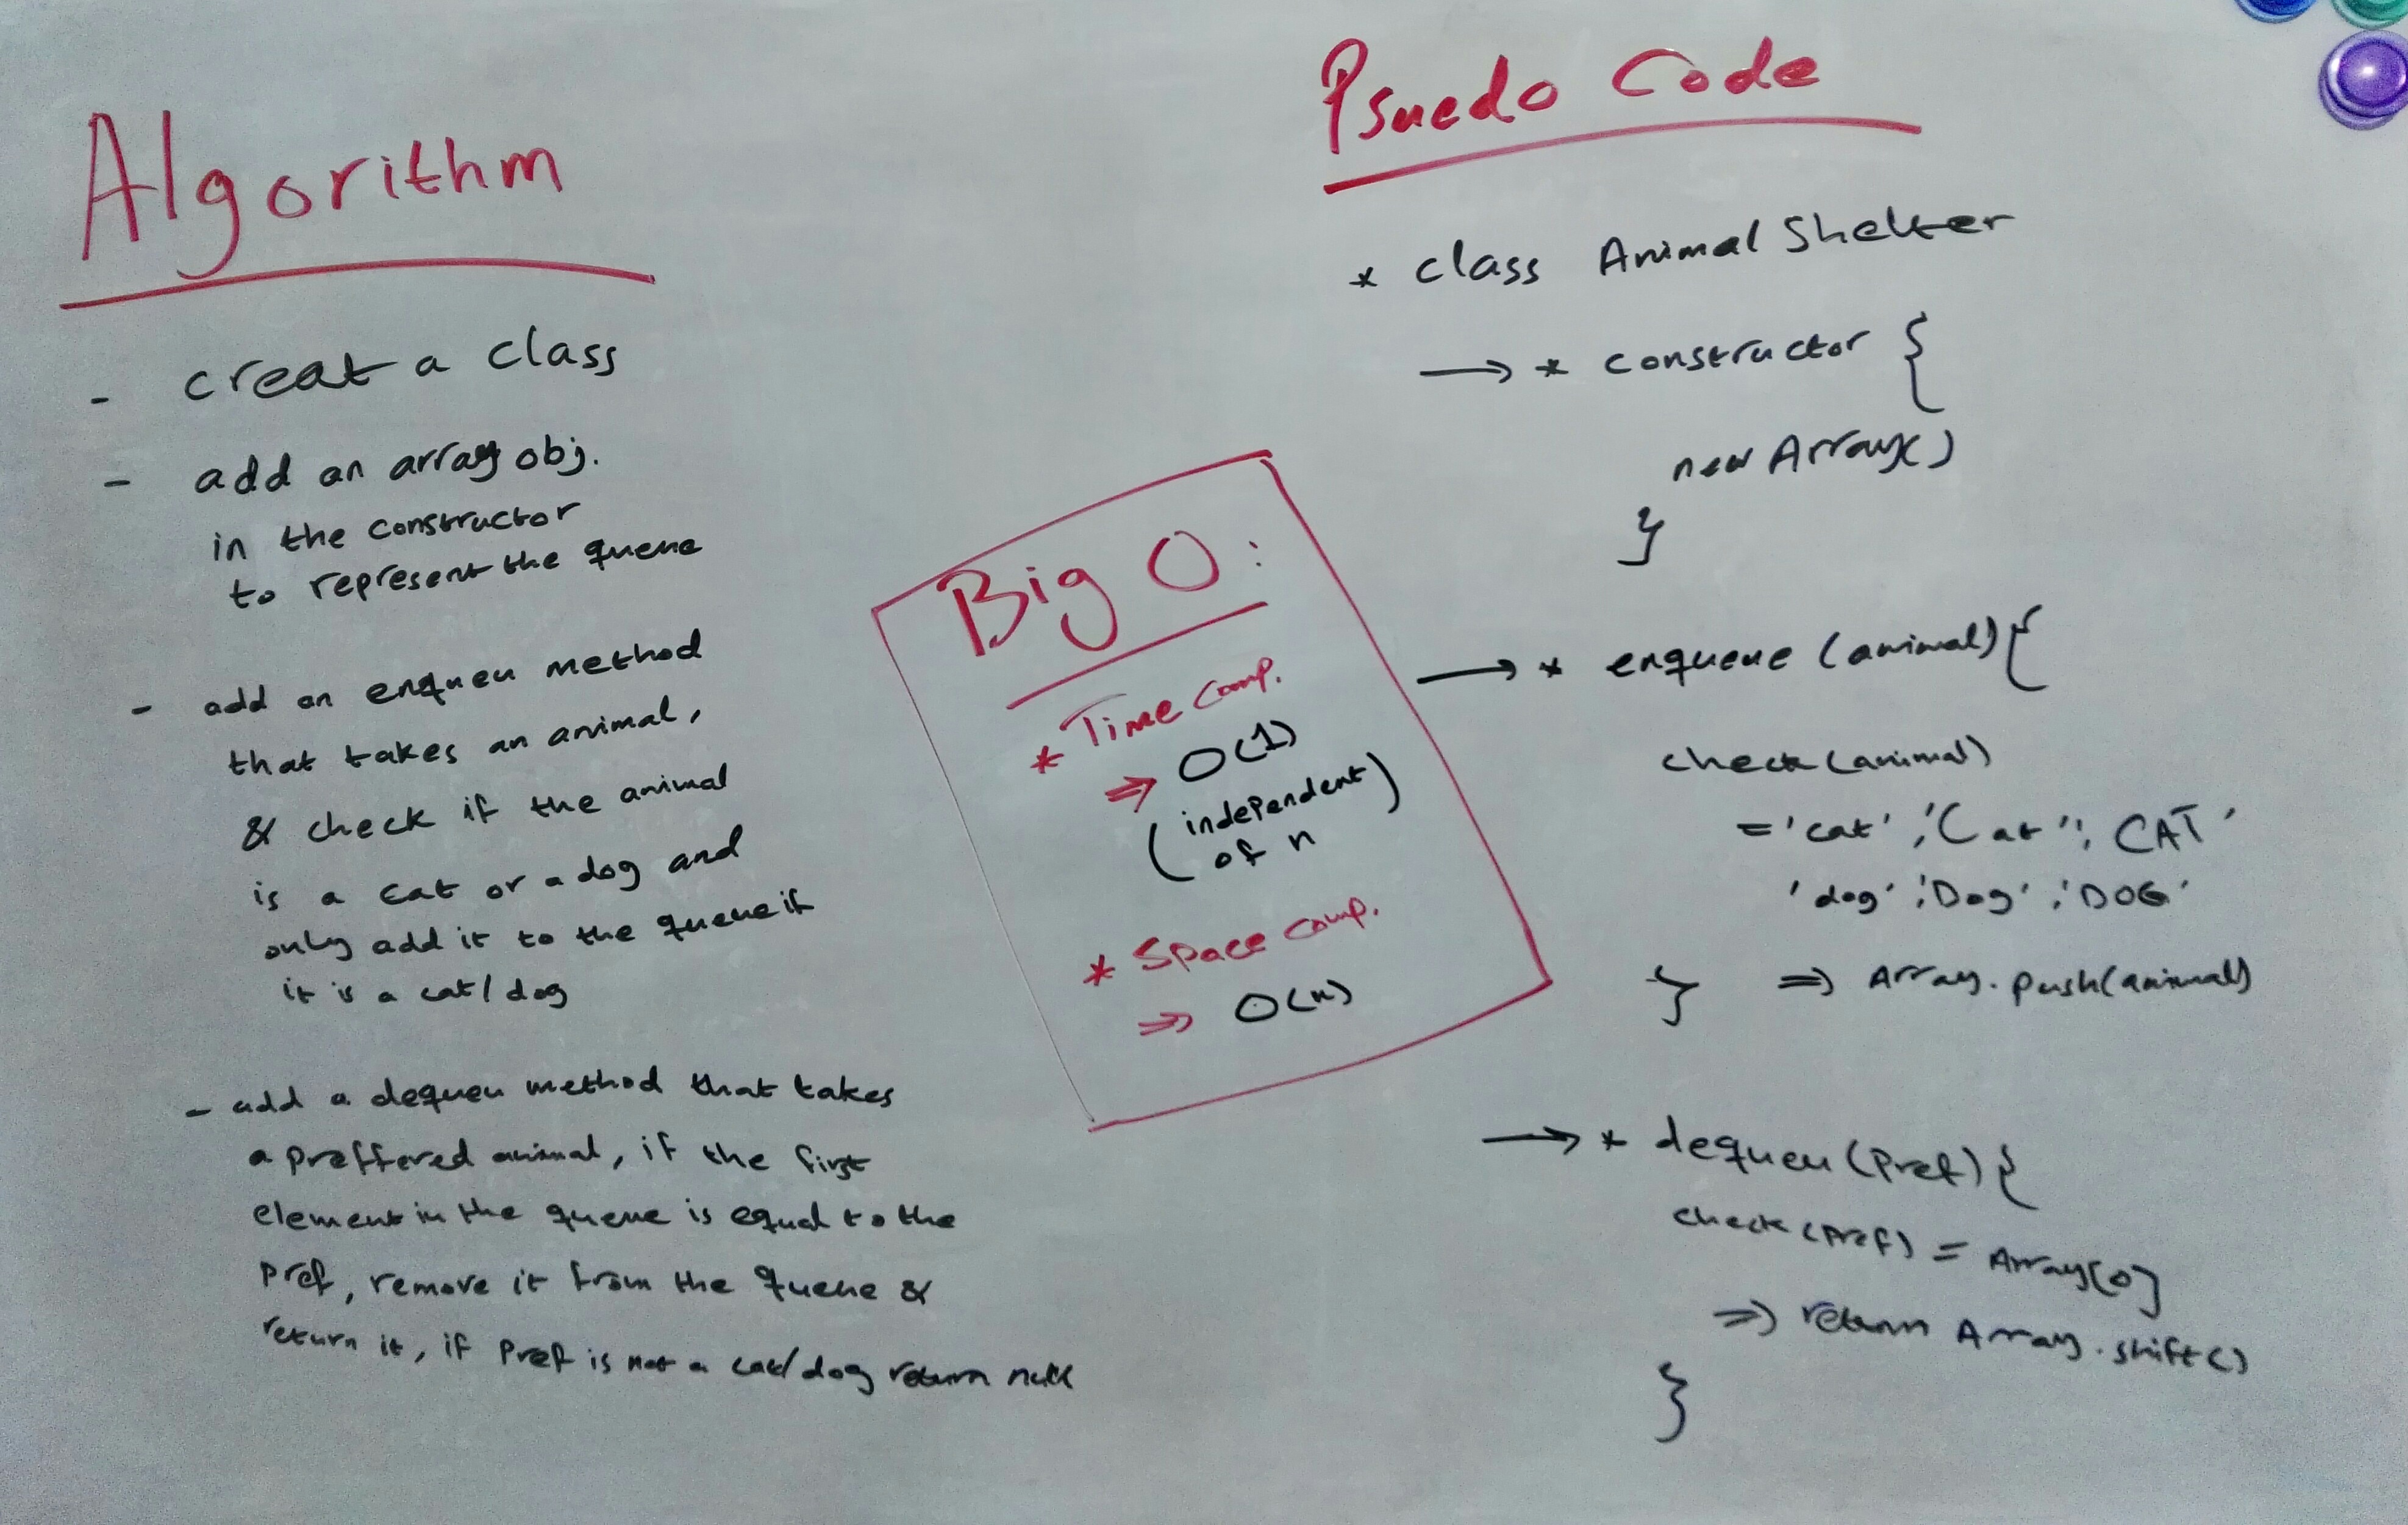 Algorithm
- creat a class
- add an array obj.
in the constructor
to represent the queue
- add an enqueu method
that takes an animal,
& check if the animal
is a cat or a dog and
only add it to the queue if
it is a cat/dog
- add a dequeu method that takes
a preffered animal, if the first
element in the queue is equal to the
pref, remove it from the queue &
return it, if pref is not a cat/dog return null
Big O:
* Time comp.
⇒ O(1)
(independent)
of n
* Space comp.
⇒ O(n)
Psuedo Code
* class Animal Shelter
→ * constructor {
new Array()
}
→ * enqueue (animal) {
check (animal)
= 'cat', 'Cat', 'CAT'
'dog', 'Dog', 'DOG'
} ⇒ Array.push(animal)
→ * dequeu (pref) {
check (pref) = Array[0]
⇒ return Array.shift()
}